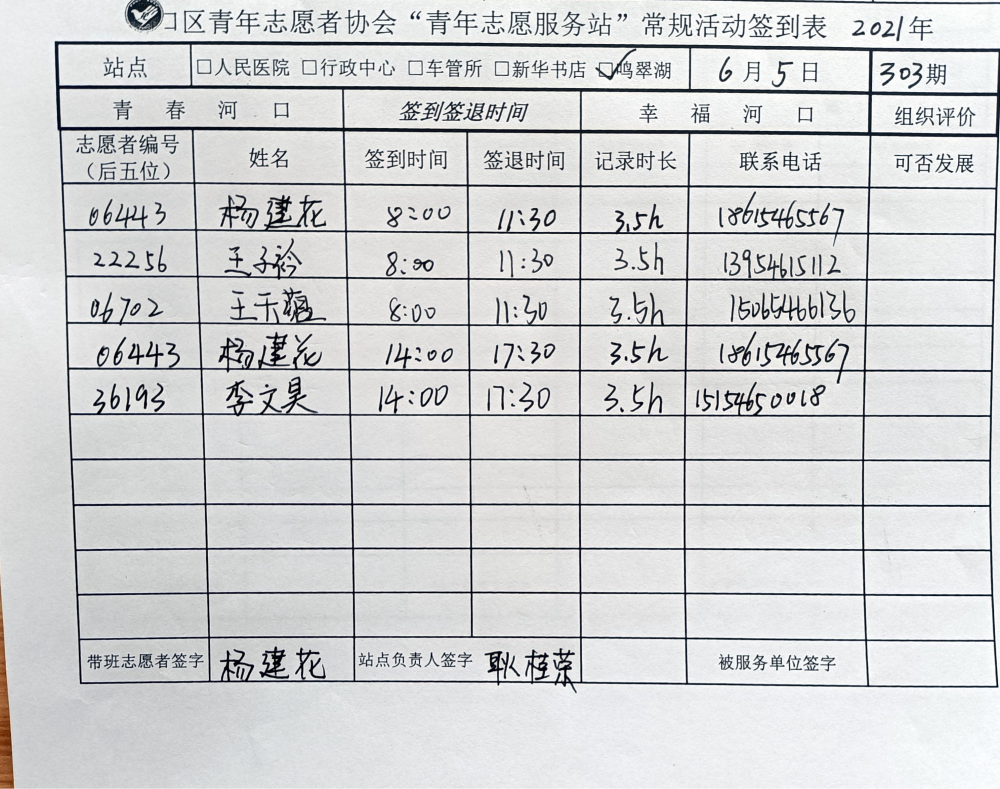 口区青年志愿者协会“青年志愿服务站”常规活动签到表 2021年
站点 □人民医院 □行政中心 □车管所 □新华书店 ☑鸣翠湖 6月5日 303期
青春河口 签到签退时间 幸福河口 组织评价
志愿者编号（后五位） 姓名 签到时间 签退时间 记录时长 联系电话 可否发展
06443 杨建花 8:00 11:30 3.5h 18615465567
22256 王子衿 8:00 11:30 3.5h 13954615112
06702 王天蕴 8:00 11:30 3.5h 15065466136
06443 杨建花 14:00 17:30 3.5h 18615465567
36193 李文昊 14:00 17:30 3.5h 15154650018
带班志愿者签字 杨建花 站点负责人签字 耿桂荣 被服务单位签字